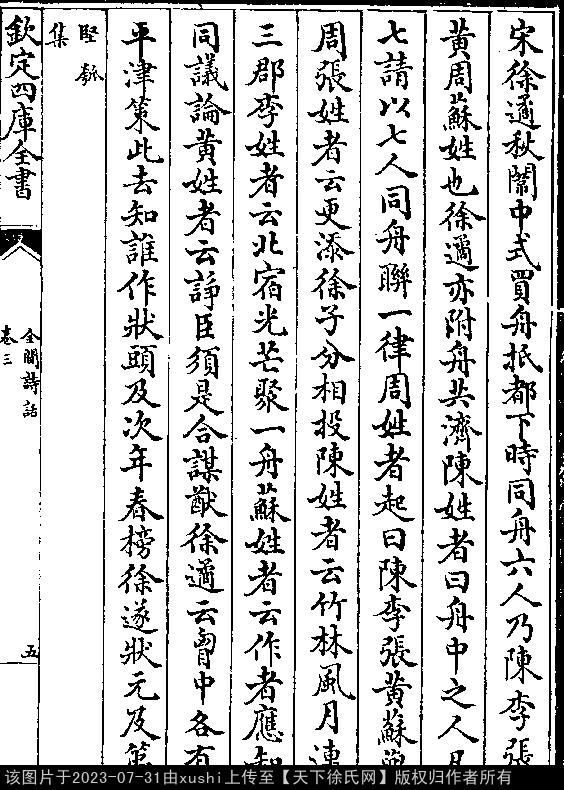 宋徐遹秋闈中式買舟抵都下時同舟六人乃陳李張
黃周蘇姓也徐遹亦附舟共濟陳姓者曰舟中之人凡
七請以七人同舟聯一律周姓者起曰陳李張黃蘇
周張姓者云更添徐子分相投陳姓者云竹林風月連
三郡李姓者云北宿光芒聚一舟蘇姓者云作者應知
同議論黃姓者云諍臣須是合謀猷徐遹云胷中各有
平津策此去知誰作狀頭及次年春榜徐遂狀元及第
堅瓠
集
欽定四庫全書
全閩詩話
卷三
五
该图片于2023-07-31由xushi上传至【天下徐氏网】版权归作者所有